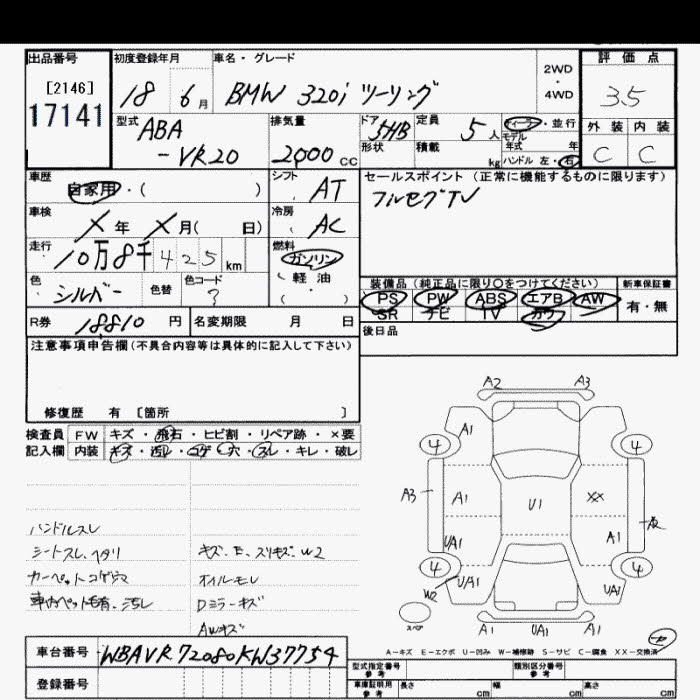 出品番号
[2146]
17141
初度登録年月
18 6 月
車名・グレード
BMW 320i ツーリング
2WD
・
4WD
評価点
3.5
外装 内装
C C
型式
ABA
-VR20
排気量
2000 cc
ドア 5HB
形状
定員 5 人
積載 kg
ディーラー・並行
モデル
年式 年
ハンドル 左・右
車歴
自家用・( )
シフト
AT
車検
X 年 X 月( 日)
冷房
AC
走行
10万8千425 km
燃料
ガソリン
軽油
( ・ )
色
シルバー
色替
色コード
?
R券 18810 円
名変期限 月 日
セールスポイント(正常に機能するものに限ります)
フルセグTV
装備品(純正品に限り○をつけてください)
新車保証書
PS PW ABS エアB AW
SR ナビ TV カワ
有・無
後日品
注意事項申告欄(不具合内容等は具体的に記入して下さい)
修復歴 有 [箇所 ]
検査員 FW キズ・飛石・ヒビ割・リペア跡・×要
記入欄 内装 キズ・汚レ・コゲ・穴・スレ・キレ・破レ
ハンドルスレ
シートスレ、ヘタリ
カーペットコゲ穴
車内ペット毛有、汚レ
キズ、E、スリキズ、W2
オイルモレ
Dミラーキズ
AWキズ
A2 A3
A1
4 4
A3 A1 U1 XX A2
UA1 A1
4 4
W2 UA1 UA1
スペア
A1 UA1 A1
A−キズ E−エクボ U−凹み W−補修跡 S−サビ C−腐食 XX−交換済
車台番号 WBAVR72080KW37754
登録番号
型式指定番号
参考
類別区分番号
参考
車庫証明用
参考
長さ cm 幅 cm 高さ cm